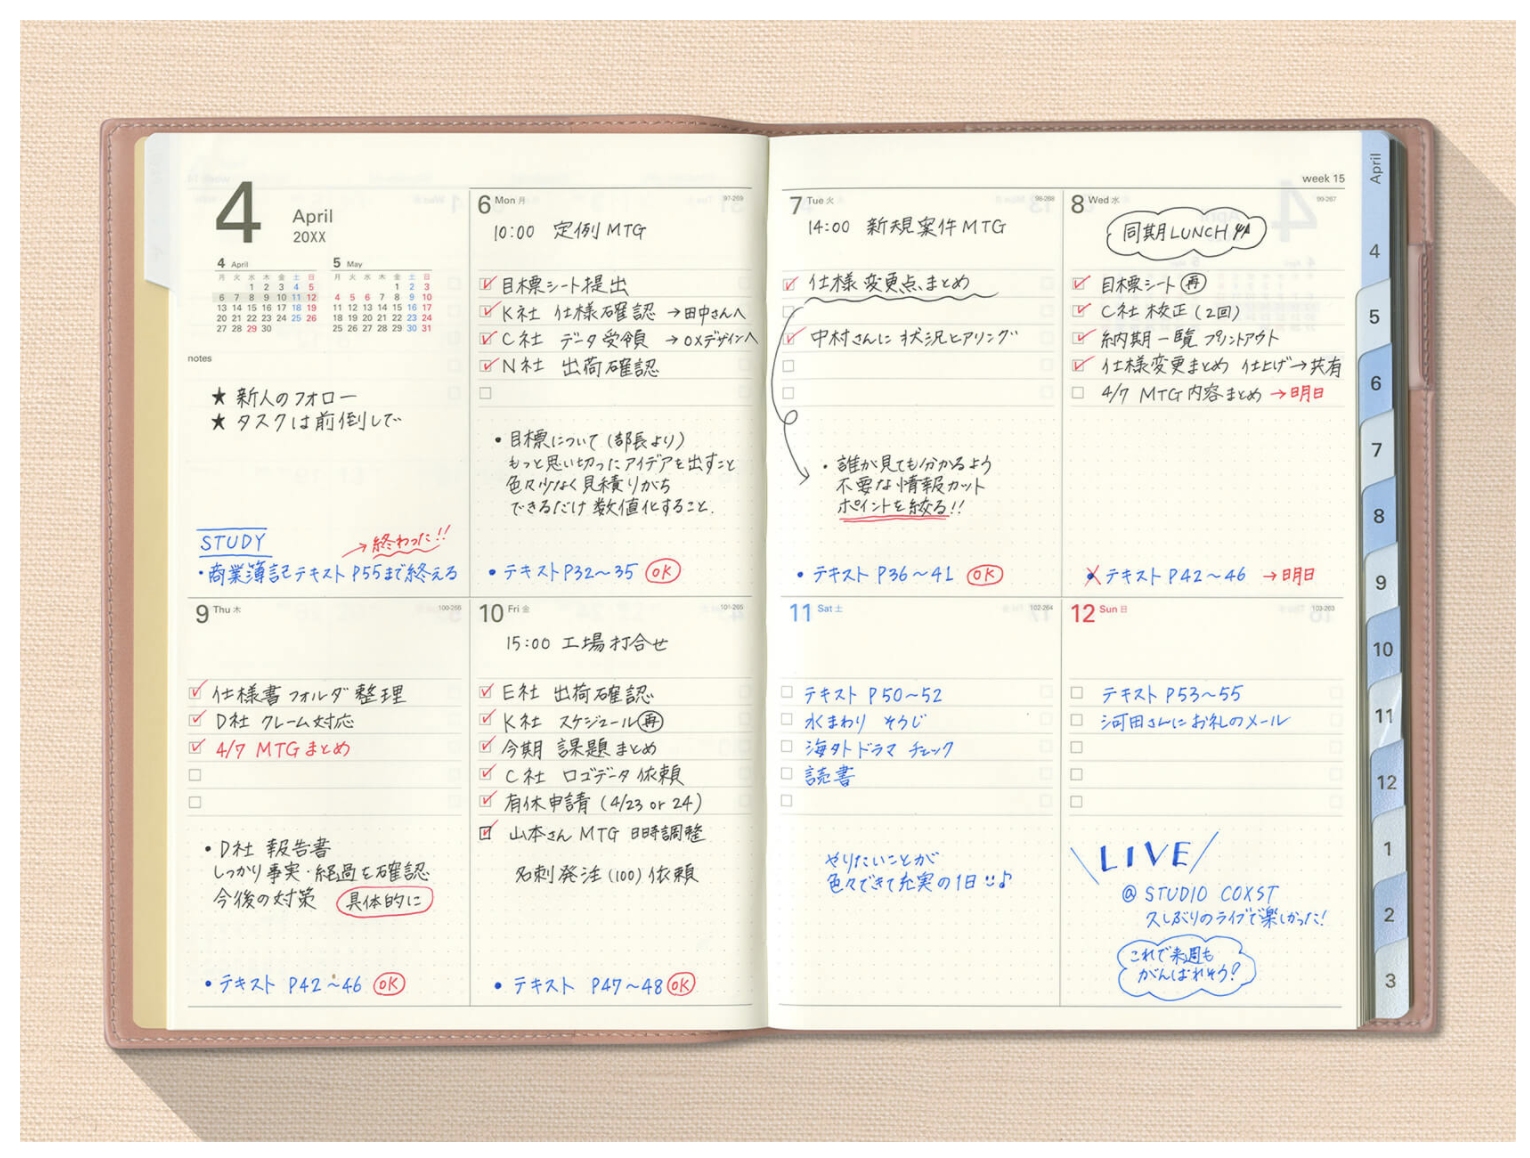 4 April
20XX
4 April
月 火 水 木 金 土 日
1 2 3 4 5
6 7 8 9 10 11 12
13 14 15 16 17 18 19
20 21 22 23 24 25 26
27 28 29 30
5 May
月 火 水 木 金 土 日
1 2 3
4 5 6 7 8 9 10
11 12 13 14 15 16 17
18 19 20 21 22 23 24
25 26 27 28 29 30 31
notes
★ 新人のフォロー
★ タスクは前倒しで
STUDY
→終わった!!
・商業簿記テキスト P55まで終える
6 Mon 月
10:00 定例MTG
目標シート提出
K社 仕様確認 →田中さんへ
C社 データ受領 →OXデザインへ
N社 出荷確認
・目標について(部長より)
もっと思い切ったアイデアを出すこと
色々少なく見積りがち
できるだけ数値化すること.
・テキストP32~35 OK
7 Tue 火
98-268
14:00 新規案件MTG
仕様変更点まとめ
中村さんに状況ヒアリング
・誰が見ても分かるよう
不要な情報カット
ポイントを絞る!!
・テキスト P36~41 OK
week 15
8 Wed 水
99-267
同期LUNCH
目標シート 再
C社 校正(2回)
納期一覧 プリントアウト
仕様変更まとめ 仕上げ→共有
4/7 MTG内容まとめ →明日
・テキスト P42~46 →明日
9 Thu 木
100-266
仕様書フォルダ整理
D社 クレーム対応
4/7 MTGまとめ
・D社 報告書
しっかり事実・経過を確認
今後の対策 具体的に
・テキスト P42~46 OK
10 Fri 金
101-265
15:00 工場打合せ
E社 出荷確認
K社 スケジュール 再
今期 課題まとめ
C社 ロゴデータ依頼
有休申請(4/23 or 24)
山本さん MTG 日時調整
名刺発注(100)依頼
・テキスト P47~48 OK
11 Sat 土
102-264
テキスト P50~52
水まわり そうじ
海外ドラマ チェック
読書
やりたいことが
色々できて充実の1日
12 Sun 日
103-263
テキスト P53~55
河田さんにお礼のメール
\LIVE/
@ STUDIO COXST
久しぶりのライブで楽しかった!
これで来週も
がんばれそう!
April
4
5
6
7
8
9
10
11
12
1
2
3